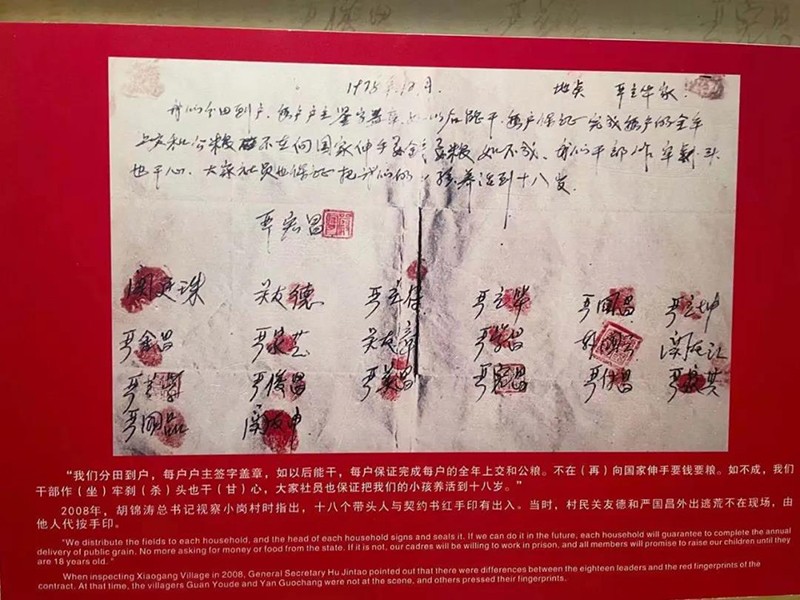 1978年12月。 地点 严立华家
我们分田到户,每户户主签字盖章,如以后能干,每户保证完成每户的全年
上交和公粮 不在向国家伸手要钱要粮。如不成,我们干部作牢剎头
也干心,大家社员也保证把我们的小孩养活到十八岁。
严宏昌
关廷珠 关友德 严立符 严立华 严国昌 严立坤
严金昌 严家芝 关友章 严学昌 韩国云 关友江
严立学 严俊昌 严美昌 严宏昌 严付昌 严家其
严国品 关友申
“我们分田到户,每户户主签字盖章,如以后能干,每户保证完成每户的全年上交和公粮。不在(再)向国家伸手要钱要粮。如不成,我们
干部作(坐)牢刹(杀)头也干(甘)心,大家社员也保证把我们的小孩养活到十八岁。”
2008年,胡锦涛总书记视察小岗村时指出,十八个带头人与契约书红手印有出入。当时,村民关友德和严国昌外出逃荒不在现场,由
他人代按手印。
"We distribute the fields to each household, and the head of each household signs and seals it. If we can do it in the future, each household will guarantee to complete the annual
delivery of public grain. No more asking for money or food from the state. If it is not, our cadres will be willing to work in prison, and all members will promise to raise our children until they
are 18 years old. "
When inspecting Xiaogang Village in 2008, General Secretary Hu Jintao pointed out that there were differences between the eighteen leaders and the red fingerprints of the
contract. At that time, the villagers Guan Youde and Yan Guochang were not at the scene, and others pressed their fingerprints.